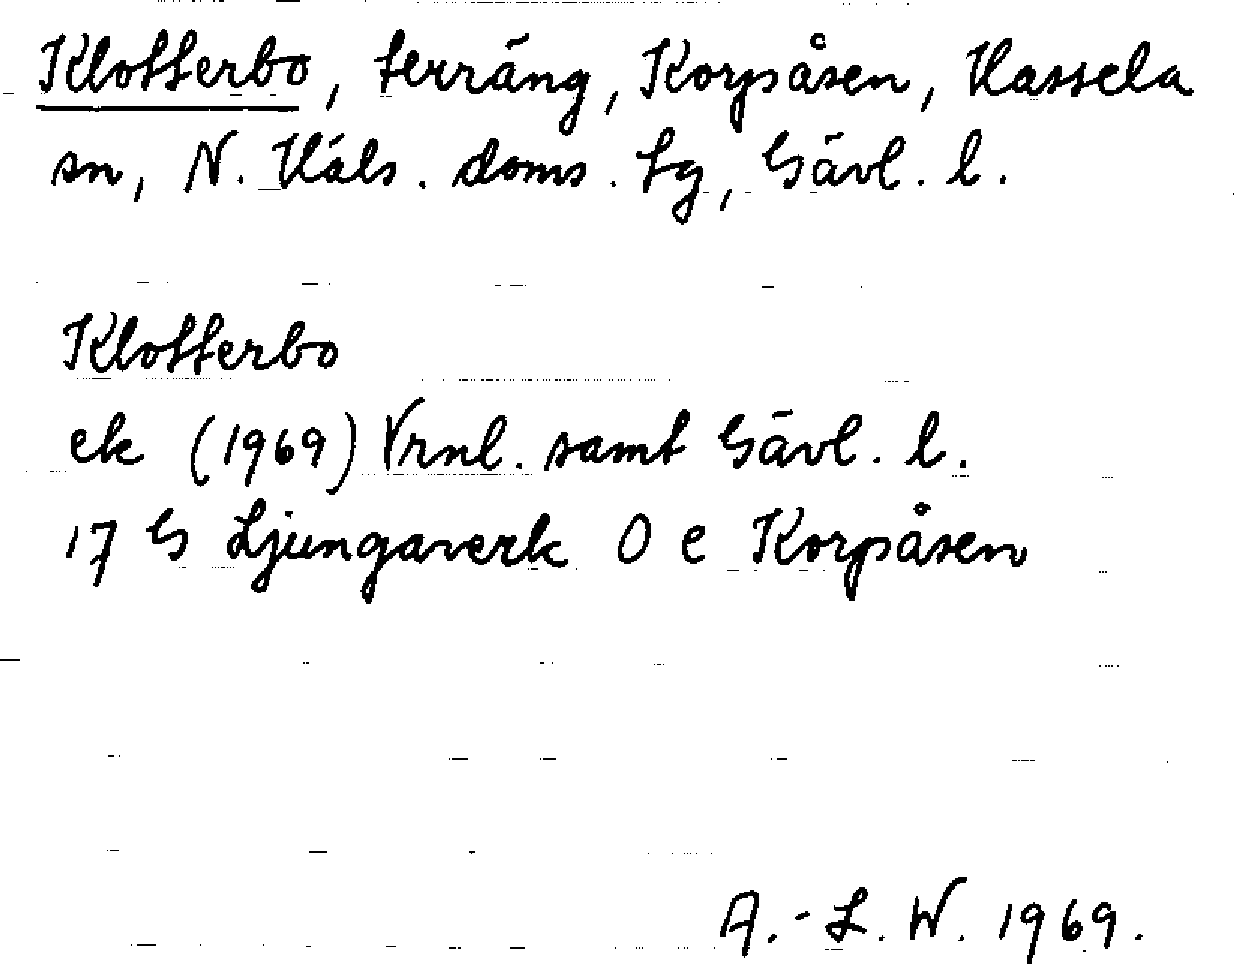 Klotterbo, terräng, Korpåsen, Hassela
sn, N. Häls. doms. tg, Gävl. l.
Klotterbo
ek (1969) Vrnl. samt Gävl. l.
17 G Ljungaverk 0 e Korpåsen
A.-L. W. 1969.